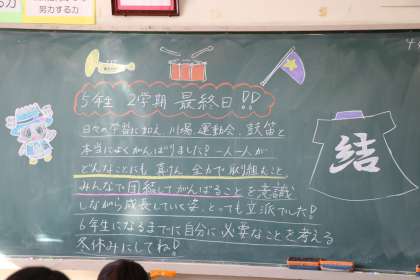 力
努力する力
5年生 2学期 最終日!!
日々の学習に加え、川場、運動会、鼓笛と
本当によくがんばりました!一人一人が
どんなことにも 真けん 全力で取り組むこと
みんなで団結してがんばることを意識
しながら成長していく姿、とっても立派でした!
6年生になるまでに自分に必要なことを考える
冬休みにしてね!
結